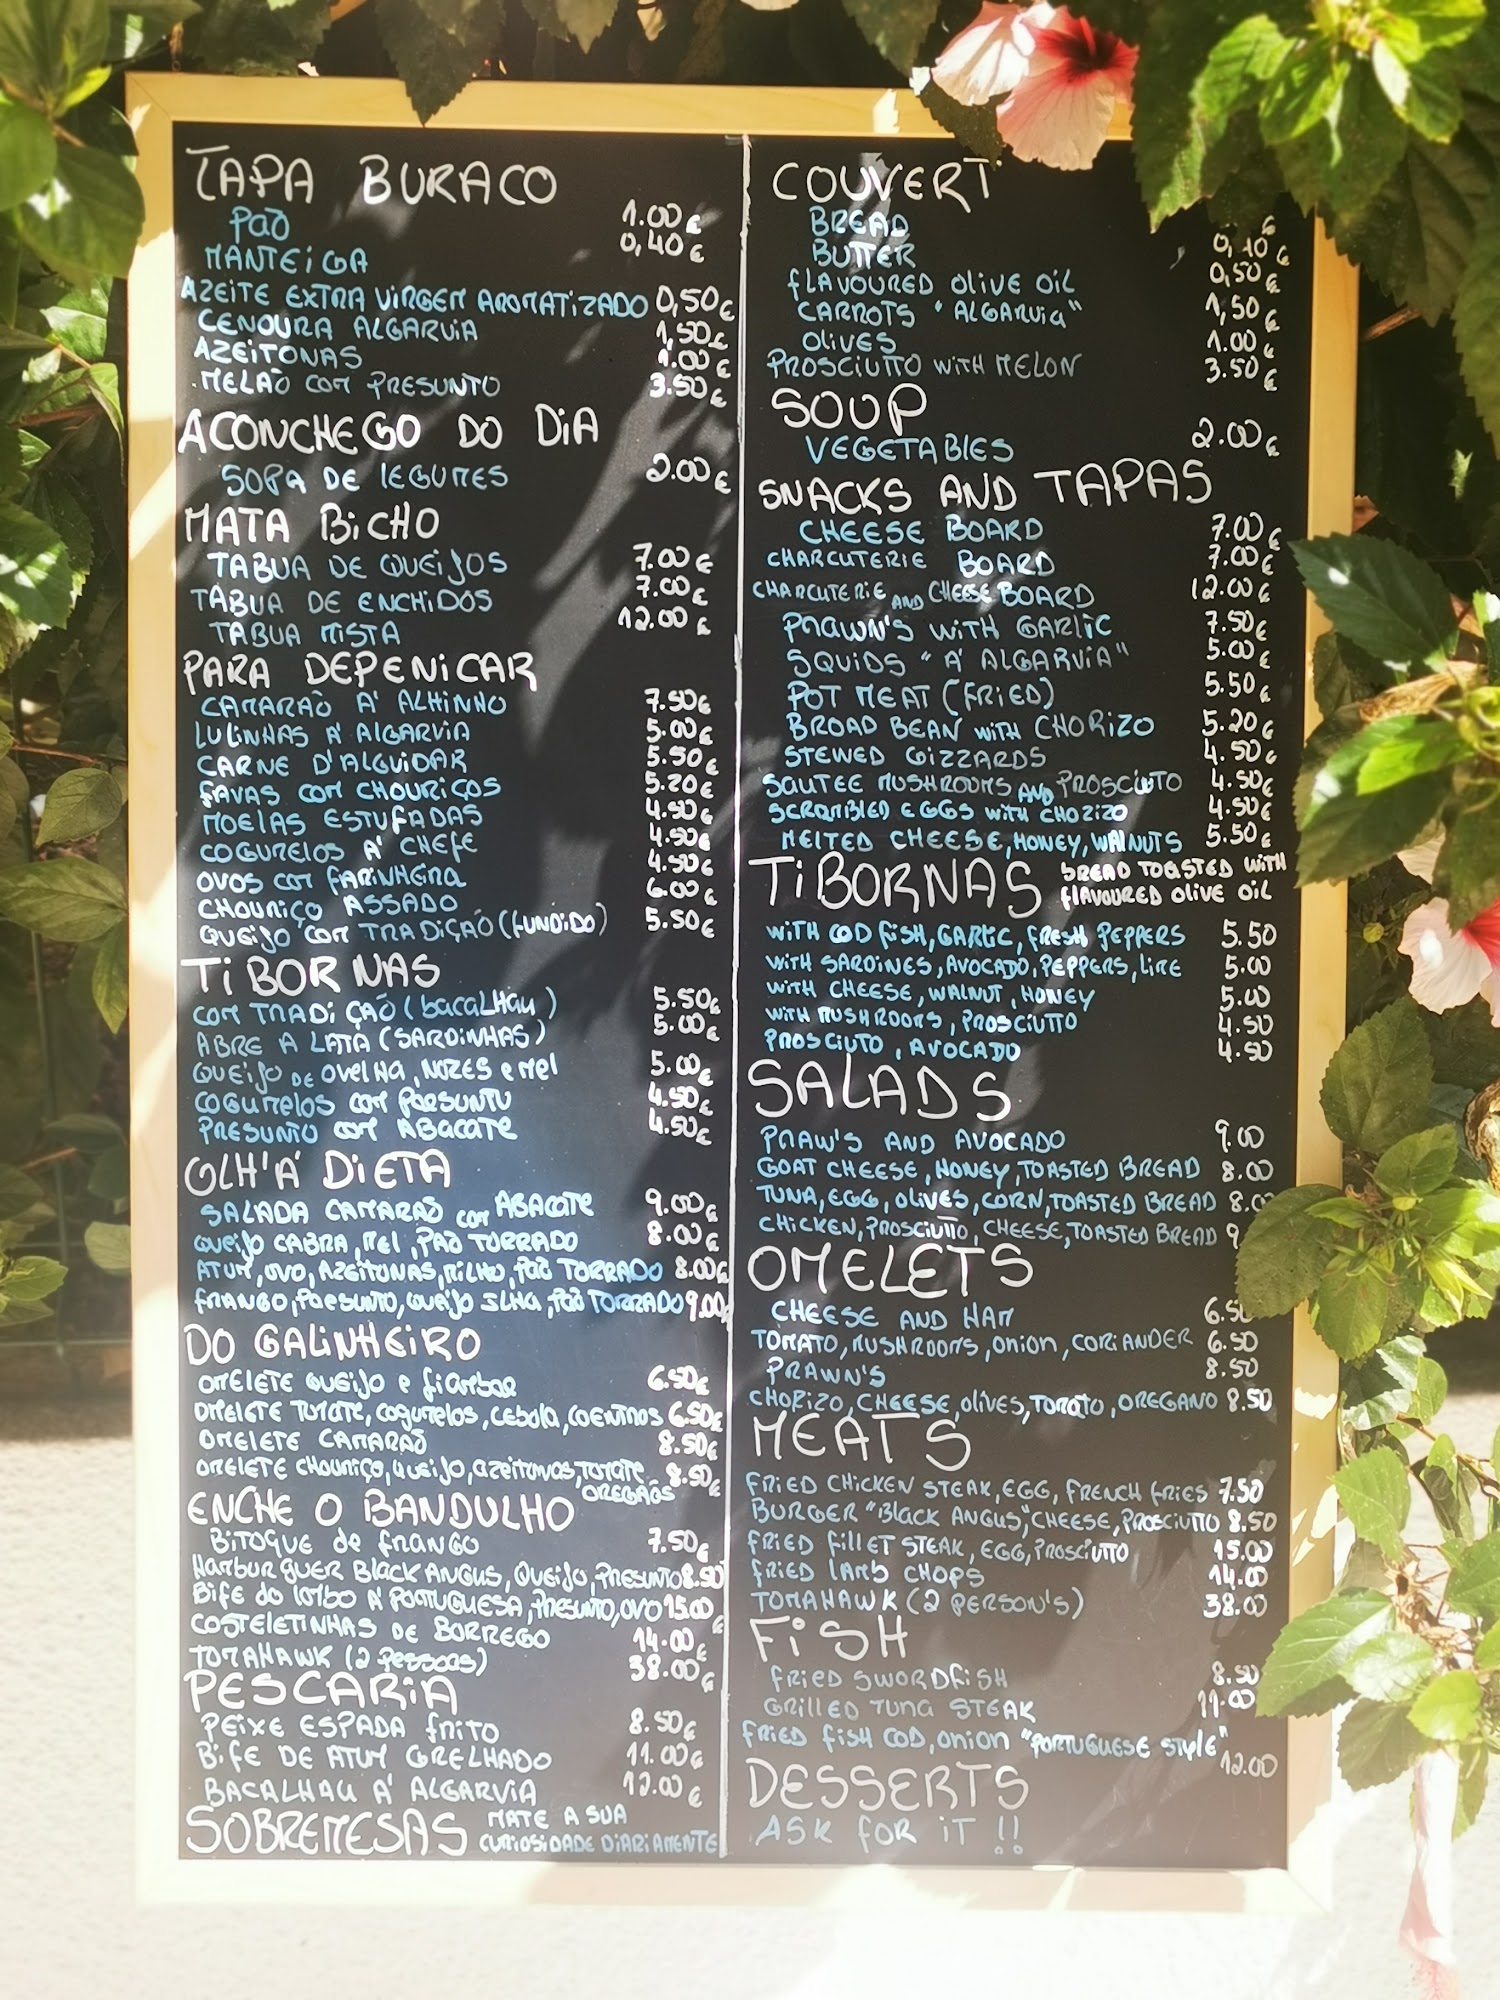 TAPA BURACO
PÃO 1.00€
MANTEIGA 0,40€
AZEITE EXTRA VIRGEM AROMATIZADO 0,50€
CENOURA ALGARVIA 1,50€
AZEITONAS 1.00€
MELÃO COM PRESUNTO 3.50€
ACONCHEGO DO DIA
SOPA DE LEGUMES 2.00€
MATA BICHO
TABUA DE QUEIJOS 7.00€
TABUA DE ENCHIDOS 7.00€
TABUA MISTA 12.00€
PARA DEPENICAR
CAMARÃO A' ALHINHO 7.50€
LULINHAS A' ALGARVIA 5.00€
CARNE D'ALGUIDAR 5.50€
FAVAS COM CHOURIÇOS 5.20€
MOELAS ESTUFADAS 4.50€
COGUMELOS A' CHEFE 4.50€
OVOS COM FARINHEIRA 4.50€
CHOURIÇO ASSADO 6.00€
QUEIJO COM TRADIÇÃO (FUNDIDO) 5.50€
TIBORNAS
COM TRADIÇÃO (bacalhau) 5.50€
ABRE A LATA (SARDINHAS) 5.00€
QUEIJO DE OVELHA, NOZES e MEL 5.00€
COGUMELOS COM PRESUNTO 4.50€
PRESUNTO COM ABACATE 4.50€
OLH'A' DIETA
SALADA CAMARÃO COM ABACATE 9.00€
QUEIJO CABRA, MEL, PÃO TORRADO 8.00€
ATUM, OVO, AZEITONAS, MILHO, PÃO TORRADO 8.00€
FRANGO, PRESUNTO, QUEIJO ILHA, PÃO TORRADO 9.00€
DO GALINHEIRO
OMELETE QUEIJO e fiambre 6.50€
OMELETE TOMATE, COGUMELOS, CEBOLA, COENTROS 6.50€
OMELETE CAMARÃO 8.50€
OMELETE CHOURIÇO, QUEIJO, AZEITONAS, TOMATE 8.50€
OREGÃOS
ENCHE O BANDULHO
BITOQUE de FRANGO 7.50€
HAMBURGUER BLACK ANGUS, QUEIJO, PRESUNTO 8.50
BIFE do LOMBO A' PORTUGUESA, PRESUNTO, OVO 15.00
COSTELETINHAS DE BORREGO 14.00€
TOMAHAWK (2 pessoas) 38.00€
PESCARIA
PEIXE ESPADA FRITO 8.50€
BIFE DE ATUM GRELHADO 11.00€
BACALHAU A' ALGARVIA 12.00€
SOBREMESAS MATE A SUA
CURIOSIDADE DIARIAMENTE
COUVERT
BREAD €
BUTTER 0,40€
FLAVOURED OLIVE OIL 0,50€
CARROTS "ALGARVIA" 1,50€
OLIVES 1.00€
PROSCIUTTO WITH MELON 3.50€
SOUP
VEGETABLES 2.00€
SNACKS AND TAPAS
CHEESE BOARD 7.00€
CHARCUTERIE BOARD 7.00€
CHARCUTERIE AND CHEESE BOARD 12.00€
PRAWN'S WITH GARLIC 7.50€
SQUIDS "A' ALGARVIA" 5.00€
POT MEAT (FRIED) 5.50€
BROAD BEAN WITH CHORIZO 5.20€
STEWED GIZZARDS 4.50€
SAUTEE MUSHROOMS AND PROSCIUTO 4.50€
SCRAMBLED EGGS WITH CHOZIZO 4.50€
MELTED CHEESE, HONEY, WALNUTS 5.50€
TIBORNAS BREAD TOASTED WITH
FLAVOURED OLIVE OIL
WITH COD FISH, GARLIC, FRESH PEPPERS 5.50
WITH SARDINES, AVOCADO, PEPPERS, LIME 5.00
WITH CHEESE, WALNUT, HONEY 5.00
WITH MUSHROOMS, PROSCIUTTO 4.50
PROSCIUTO, AVOCADO 4.50
SALADS
PRAW'S AND AVOCADO 9.00
GOAT CHEESE, HONEY, TOASTED BREAD 8.00
TUNA, EGG, OLIVES, CORN, TOASTED BREAD 8.00
CHICKEN, PROSCIUTTO, CHEESE, TOASTED BREAD 9
OMELETS
CHEESE AND HAM 6.50
TOMATO, MUSHROOMS, ONION, CORIANDER 6.50
PRAWN'S 8.50
CHORIZO, CHEESE, OLIVES, TOMATO, OREGANO 8.50
MEATS
FRIED CHICKEN STEAK, EGG, FRENCH FRIES 7.50
BURGER "BLACK ANGUS", CHEESE, PROSCIUTTO 8.50
FRIED FILLET STEAK, EGG, PROSCIUTTO 15.00
FRIED LAMB CHOPS 14.00
TOMAHAWK (2 PERSON'S) 38.00
FISH
FRIED SWORDFISH 8.50
GRILLED TUNA STEAK 11.00
FRIED FISH COD, ONION "PORTUGUESE STYLE"
12.00
DESSERTS
ASK FOR IT !!